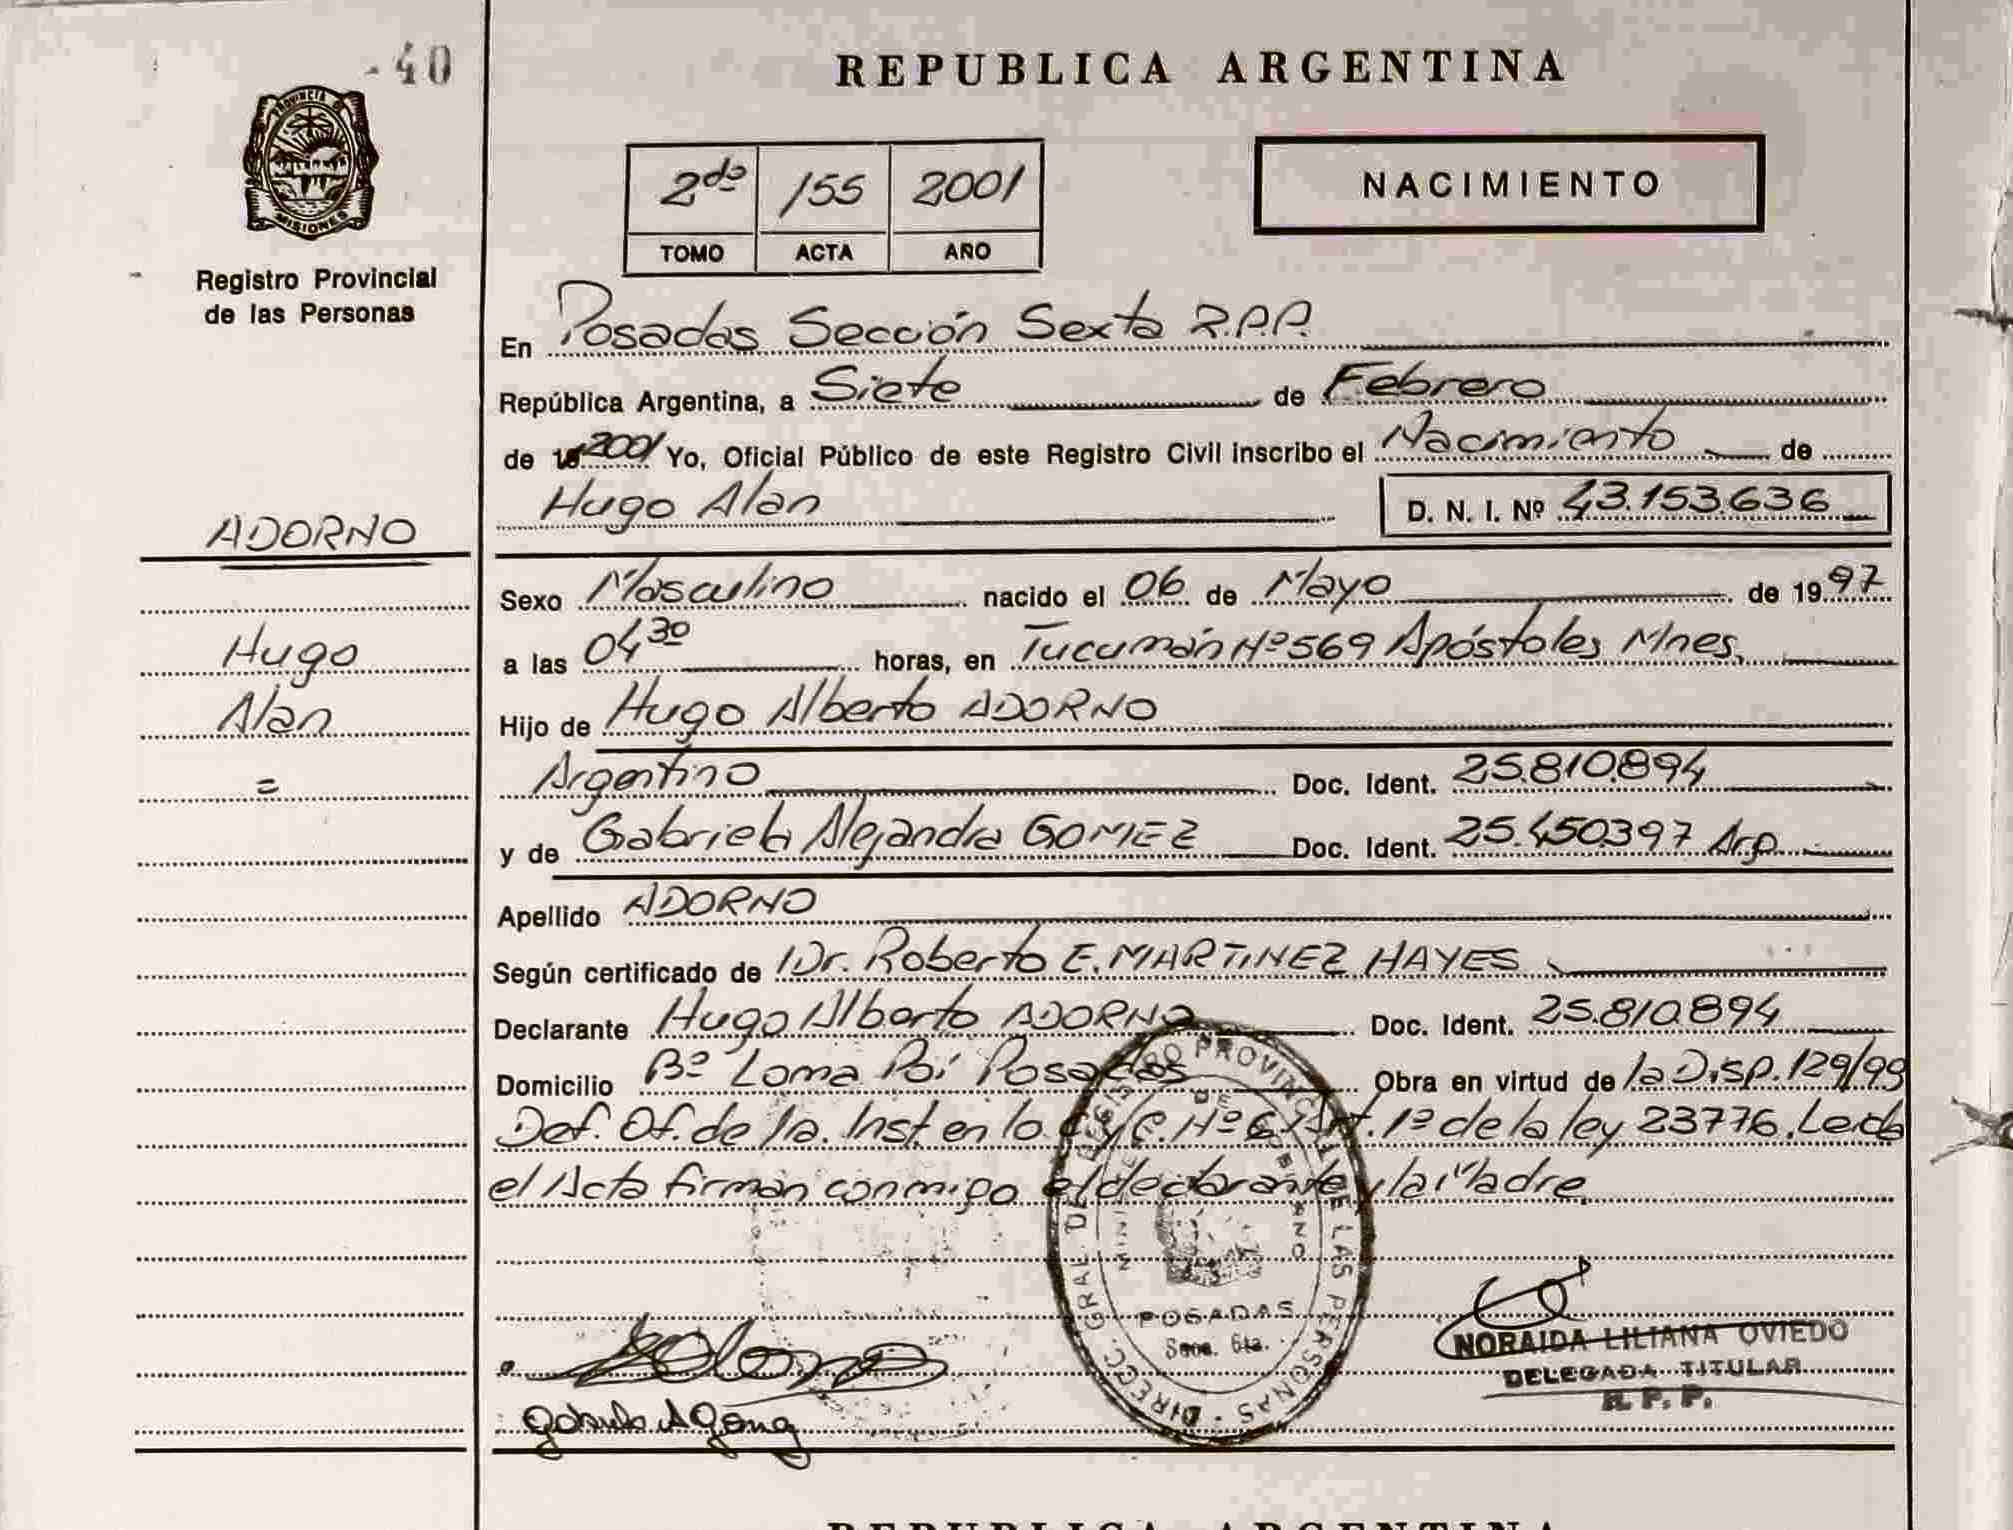 - 40
REPUBLICA ARGENTINA
PROVINCIA DE
MISIONES
Registro Provincial
de las Personas
2do 155 2001
TOMO ACTA AÑO
NACIMIENTO
En Posadas Sección Sexta R.P.P.
República Argentina, a Siete de Febrero
de 2001 Yo, Oficial Público de este Registro Civil inscribo el Nacimiento de
Hugo Alan D. N. I. Nº 43.153.636
ADORNO
Hugo
Alan
=
Sexo Masculino nacido el 06 de Mayo de 1997
a las 04 30 horas, en Tucumán Nº 569 Apóstoles Mnes.
Hijo de Hugo Alberto ADORNO
Argentino Doc. Ident. 25.810.894
y de Gabriela Alejandra GOMEZ Doc. Ident. 25.450.397 Arg.
Apellido ADORNO
Según certificado de Dr. Roberto E. MARTINEZ HAYES
Declarante Hugo Alberto ADORNO Doc. Ident. 25.810.894
Domicilio Bº Loma Poí Posadas Obra en virtud de la Disp. 129/99
Def. Of. de 1a. Inst. en lo C. y C. Nº 6 Art. 1º de la ley 23776. Leida
el Acta firman conmigo el declarante y la Madre.
DIRECC. GRAL. DEL REGISTRO PROVINCIAL DE LAS PERSONAS
POSADAS
Secc. 6ta.
NORAIDA LILIANA OVIEDO
DELEGADA TITULAR
R. P. P.
REPUBLICA ARGENTINA